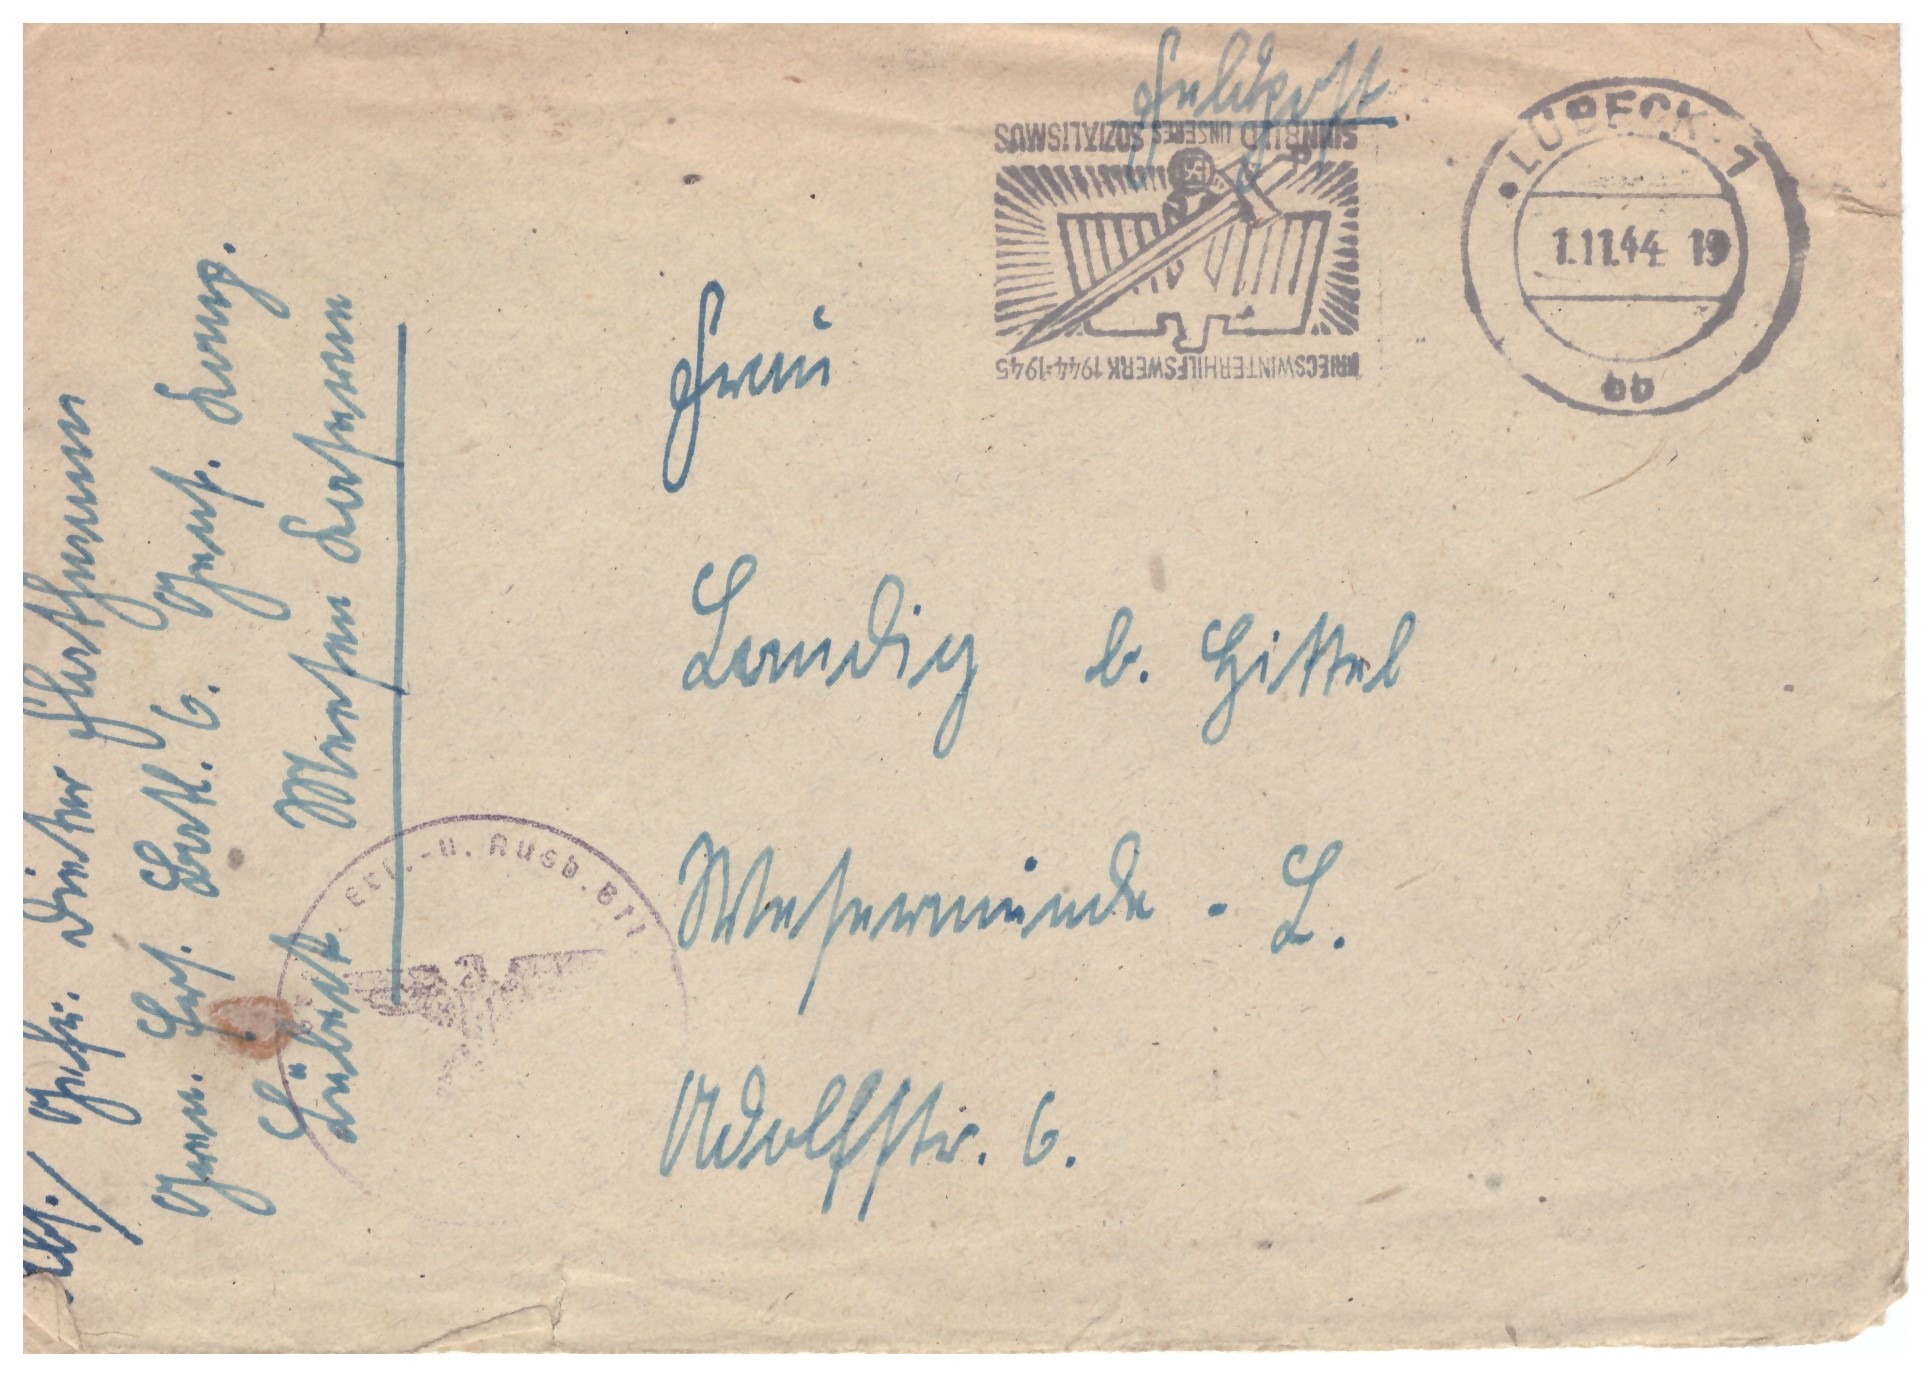 Feldpost
SINNBILD UNSERES SOZIALISMUS
KRIEGSWINTERHILFSWERK 1944-1945
LÜBECK 1
1.11.44 19
Frau
Landig b. Hittel
Wesermünde - L.
Adolfstr. 6.
Abs./ Gefr. Dieter
Gren. Ers. Batl. 6. Genes. Komp.
Lübeck Meesen Kaserne
Ers.-u. Ausb. Btl